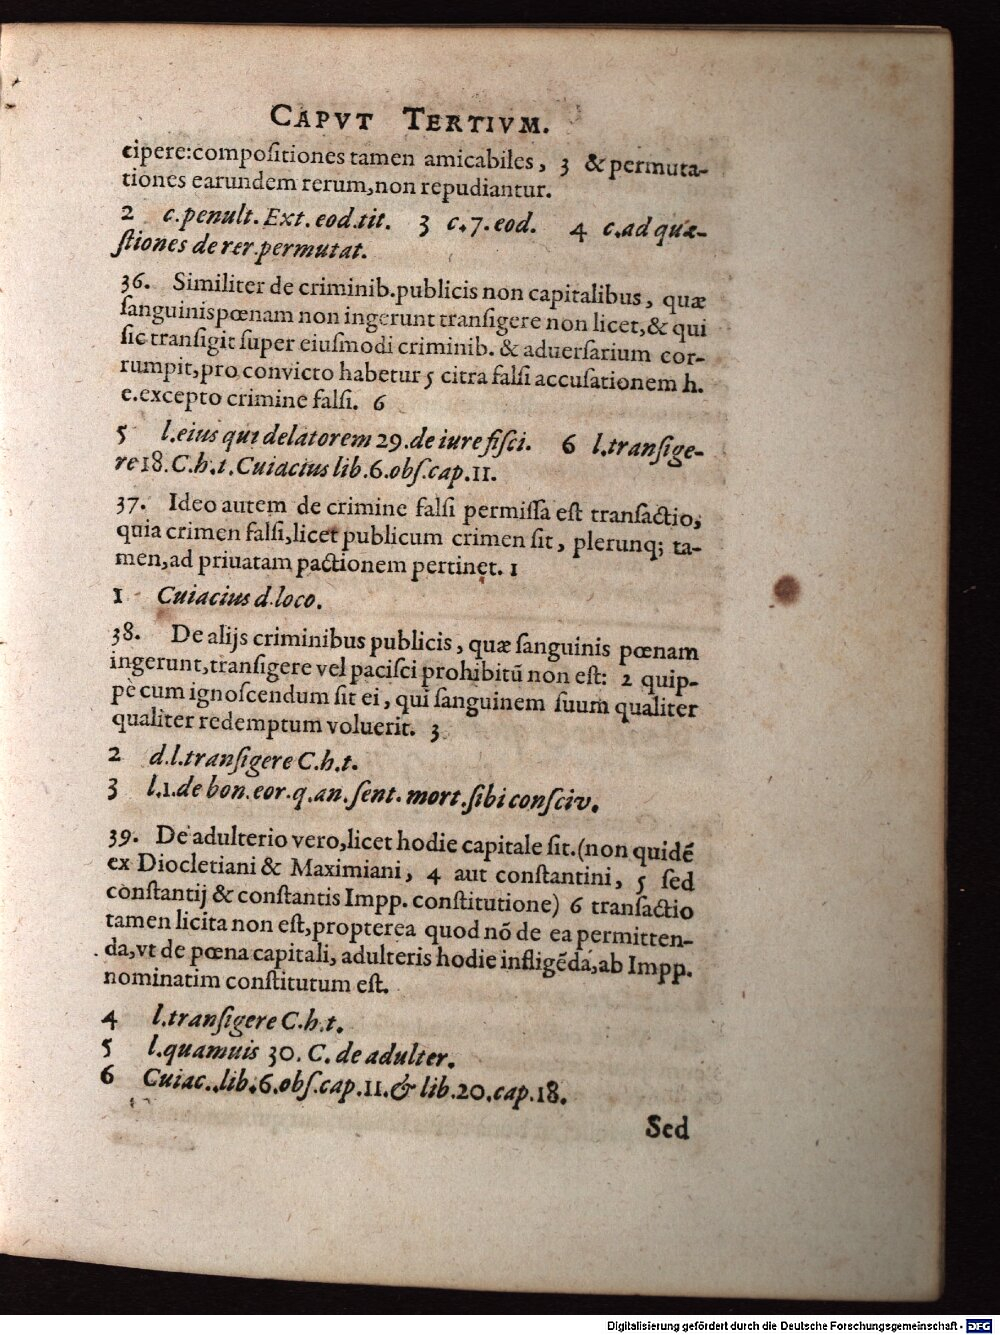 CAPVT TERTIVM.
cipere:compoſitiones tamen amicabiles, 3 & permuta-
tiones earundem rerum,non repudiantur.
2 c.penult. Ext. eod.tit. 3 c.7.eod. 4 c.ad quæ-
ſtiones de rer.permutat.
36. Similiter de criminib.publicis non capitalibus, quæ
ſanguinis pœnam non ingerunt tranſigere non licet,& qui
ſic tranſigit ſuper eiuſmodi criminib. & aduerſarium cor-
rumpit,pro convicto habetur 5 citra falſi accuſationem h.
e.excepto crimine falſi. 6
5 l.eius qui delatorem 29.de iure fiſci. 6 l.tranſige-
re 18.C.h.t.Cuiacius lib.6.obſ.cap.11.
37. Ideo autem de crimine falſi permiſſa eſt tranſactio,
quia crimen falſi,licet publicum crimen ſit, plerunq; ta-
men,ad priuatam pactionem pertinet. 1
1 Cuiacius d.loco.
38. De alijs criminibus publicis, quæ ſanguinis pœnam
ingerunt,tranſigere vel paciſci prohibitū non eſt: 2 quip-
pè cum ignoſcendum ſit ei, qui ſanguinem ſuum qualiter
qualiter redemptum voluerit. 3
2 d.l.tranſigere C.h.t.
3 l.1.de bon.eor.q.an.ſent.mort.ſibi conſciv.
39. De adulterio vero,licet hodie capitale ſit.(non quidē
ex Diocletiani & Maximiani, 4 aut conſtantini, 5 ſed
conſtantij & conſtantis Impp. conſtitutione) 6 tranſactio
tamen licita non eſt,propterea quod nō de ea permitten-
da,vt de pœna capitali, adulteris hodie infligēda,ab Impp.
nominatim conſtitutum eſt.
4 l.tranſigere C.h.t.
5 l.quamuis 30. C. de adulter.
6 Cuiac..lib.6.obſ.cap.11.& lib.20.cap.18.
Sed
Digitalisierung gefördert durch die Deutsche Forschungsgemeinschaft - DFG